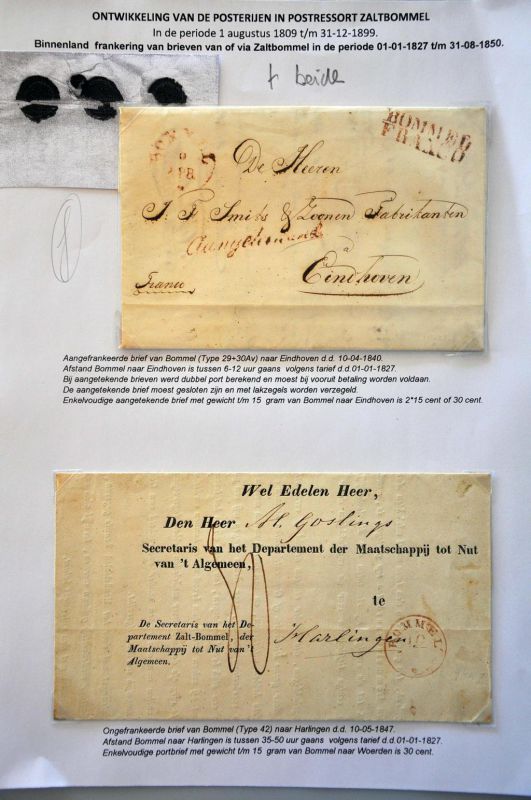 ONTWIKKELING VAN DE POSTERIJEN IN POSTRESSORT ZALTBOMMEL
In de periode 1 augustus 1809 t/m 31-12-1899.
Binnenland frankering van brieven van of via Zaltbommel in de periode 01-01-1827 t/m 31-08-1850.
beide
BOMMEL
FRANCO
De Heeren
J. F. Smits & Zoonen Fabrikanten
Aangetekend
à
Eindhoven
Franco
Aangefrankeerde brief van Bommel (Type 29+30Av) naar Eindhoven d.d. 10-04-1840.
Afstand Bommel naar Eindhoven is tussen 6-12 uur gaans volgens tarief d.d.01-01-1827.
Bij aangetekende brieven werd dubbel port berekend en moest bij vooruit betaling worden voldaan.
De aangetekende brief moest gesloten zijn en met lakzegels worden verzegeld.
Enkelvoudige aangetekende brief met gewicht t/m 15 gram van Bommel naar Eindhoven is 2*15 cent of 30 cent.
Wel Edelen Heer,
Den Heer M. Goslings
Secretaris van het Departement der Maatschappij tot Nut
van 't Algemeen,
te
De Secretaris van het De-
partement Zalt-Bommel, der
Maatschappij tot Nut van 't
Algemeen.
Harlingen
BOMMEL
Ongefrankeerde brief van Bommel (Type 42) naar Harlingen d.d. 10-05-1847.
Afstand Bommel naar Harlingen is tussen 35-50 uur gaans volgens tarief d.d.01-01-1827.
Enkelvoudige portbrief met gewicht t/m 15 gram van Bommel naar Woerden is 30 cent.